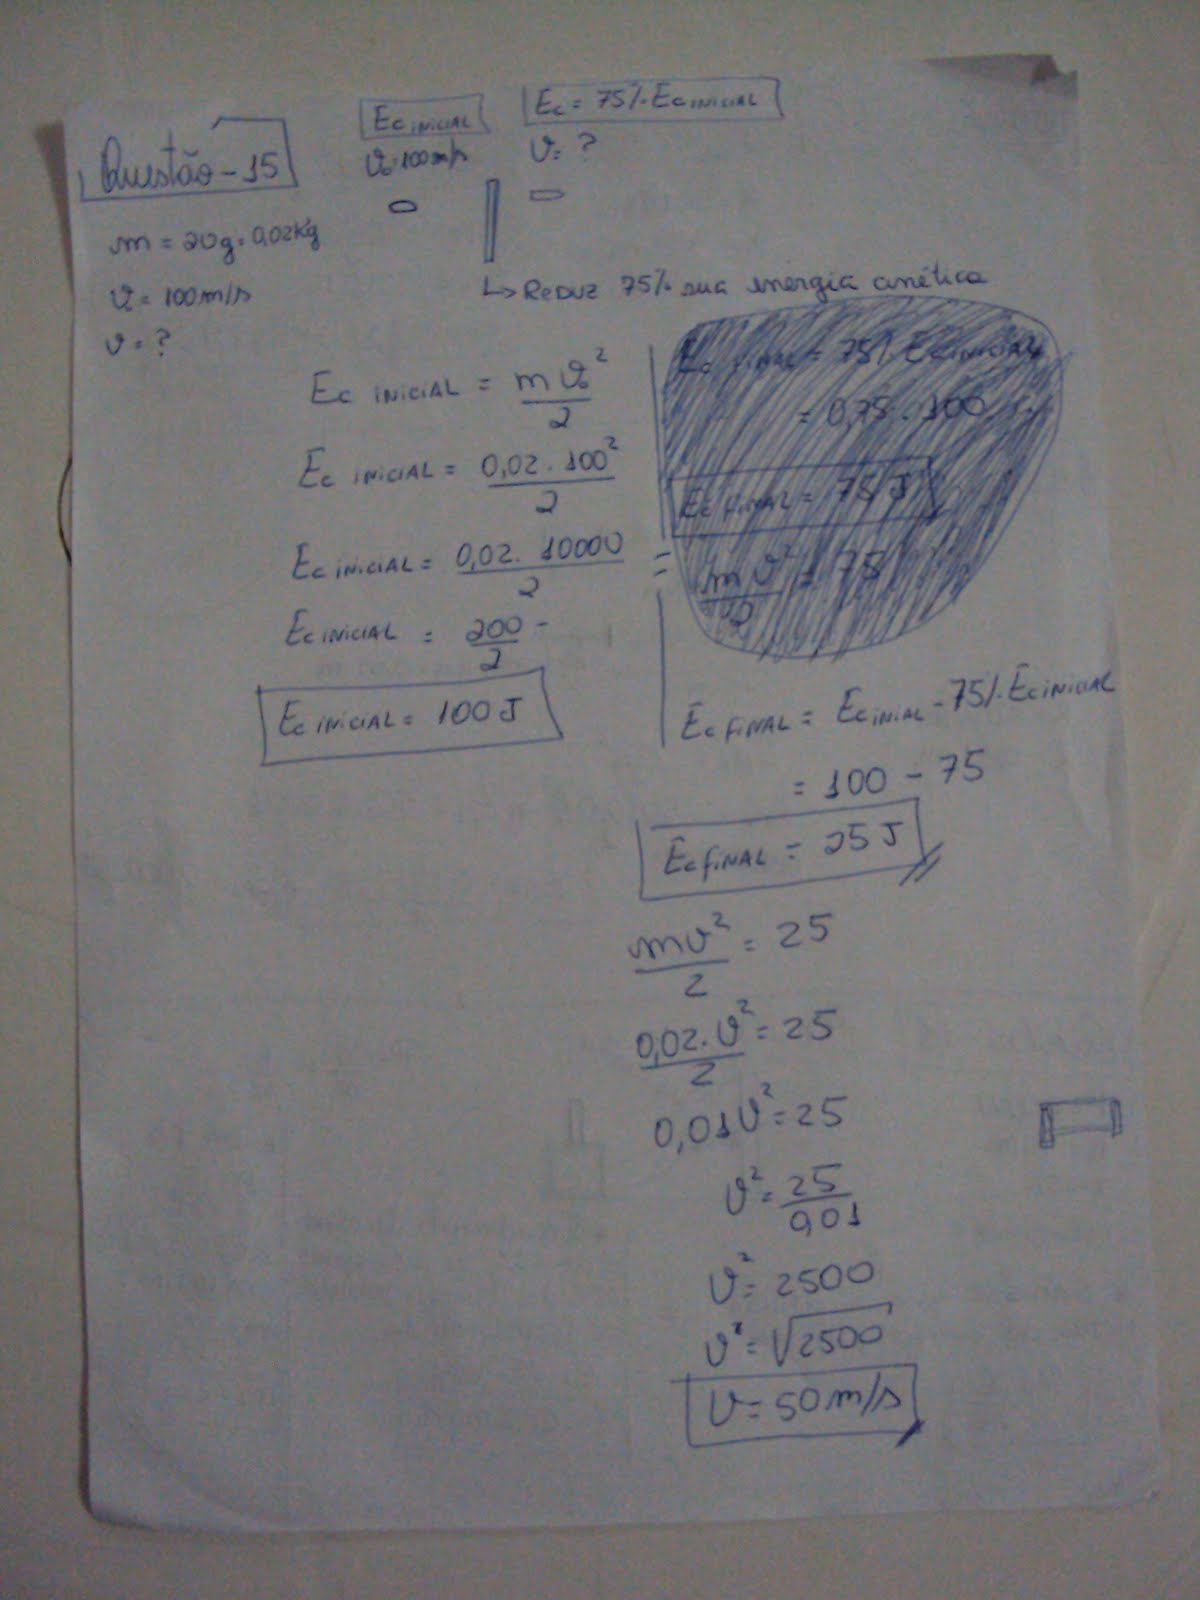 Questão - 15
Ec INICIAL
Ec = 75%. Ec INICIAL
V₀=100m/s
V= ?
m = 20g = 0,02Kg
V₀= 100m/s
v= ?
↳ REDUZ 75% sua energia cinética
Ec INICIAL = mv₀²/2
Ec INICIAL = 0,02 . 100²/2
Ec INICIAL = 0,02. 10000/2
Ec INICIAL = 200/2
Ec INICIAL = 100J
Ec FINAL = 75%. Ec INICIAL
= 0,75 . 100
Ec FINAL = 75J
mv²/2 = 75
Ec FINAL = Ec INIAL - 75%. Ec INICIAL
= 100 - 75
Ec FINAL = 25J
mv²/2 = 25
0,02.v²/2 = 25
0,01v² = 25
v² = 25/0,01
v² = 2500
v² = √2500
v = 50m/s